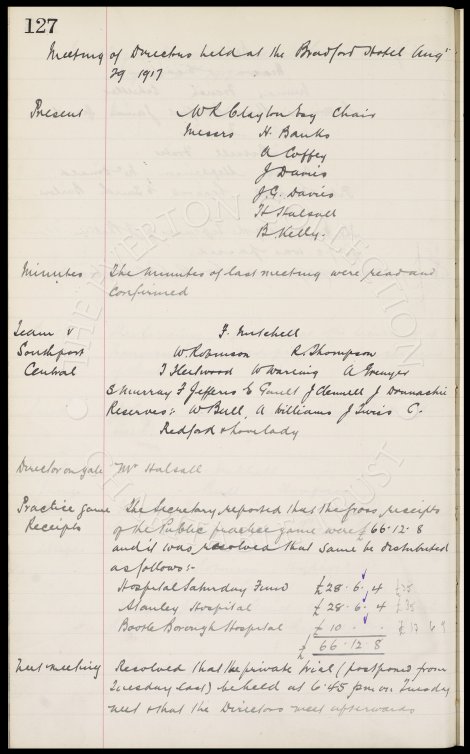 127
Meeting of Directors held at the Bradford Hotel Augt
29 1917
Present W R Clayton Esq Chair
Messrs H. Banks
A Coffey
J Davies
J.G. Davies
H Halsall
B Kelly.
Minutes The minutes of last meeting were read and
confirmed
Team v F. Mitchell
Southport W. Robinson R. Thompson
Central T Fleetwood W Wareing A Grenyer
S Murray F Jefferis E Gault J Clennell J Donnachie
Reserves:- W Bull, A Williams J Twiss C.
Redford & Lovelady
Director on gate Mr Halsall
Practice game The Secretary reported that the gross receipts
Receipts of the Public practice game were £66.12.8
and it was resolved that same be distributed
as follows:-
Hospital Saturday Fund £28.6.4 £25
Stanley Hospital £28.6.4
Bootle Borough Hospital £10 . . £13
£66.12.8
Next meeting Resolved that the private trial (postponed from
Tuesday last) be held at 6.45 pm on Tuesday
next & that the Directors meet afterwards
© THE EVERTON COLLECTION